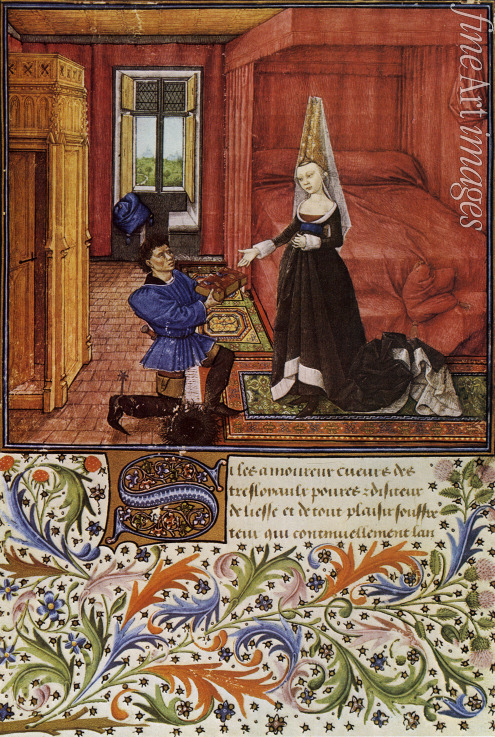 fineArtimages
Si les amoureux cueurs des
tresflorans poures z disiteur
de liesse et de tout plaisir souffre
teux qui continuellement lan